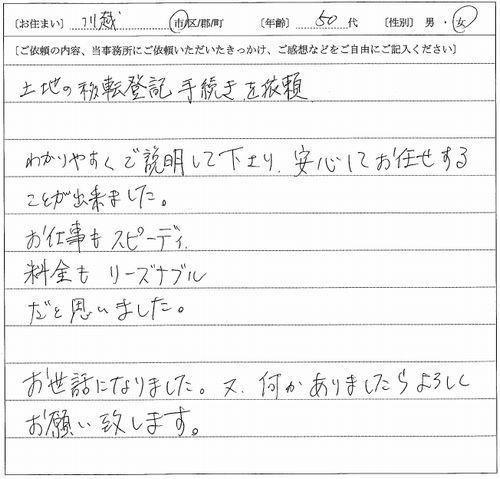 〔お住まい〕 川越 市/区/郡/町 〔年齢〕 50 代 〔性別〕 男・女
〔ご依頼の内容、当事務所にご依頼いただいたきっかけ、ご感想などをご自由にご記入ください〕
土地の移転登記手続きを依頼
わかりやすくご説明して下さり、安心してお任せする
ことが出来ました。
お仕事もスピーディ、
料金もリーズナブル
だと思いました。
お世話になりました。又、何かありましたらよろしく
お願い致します。